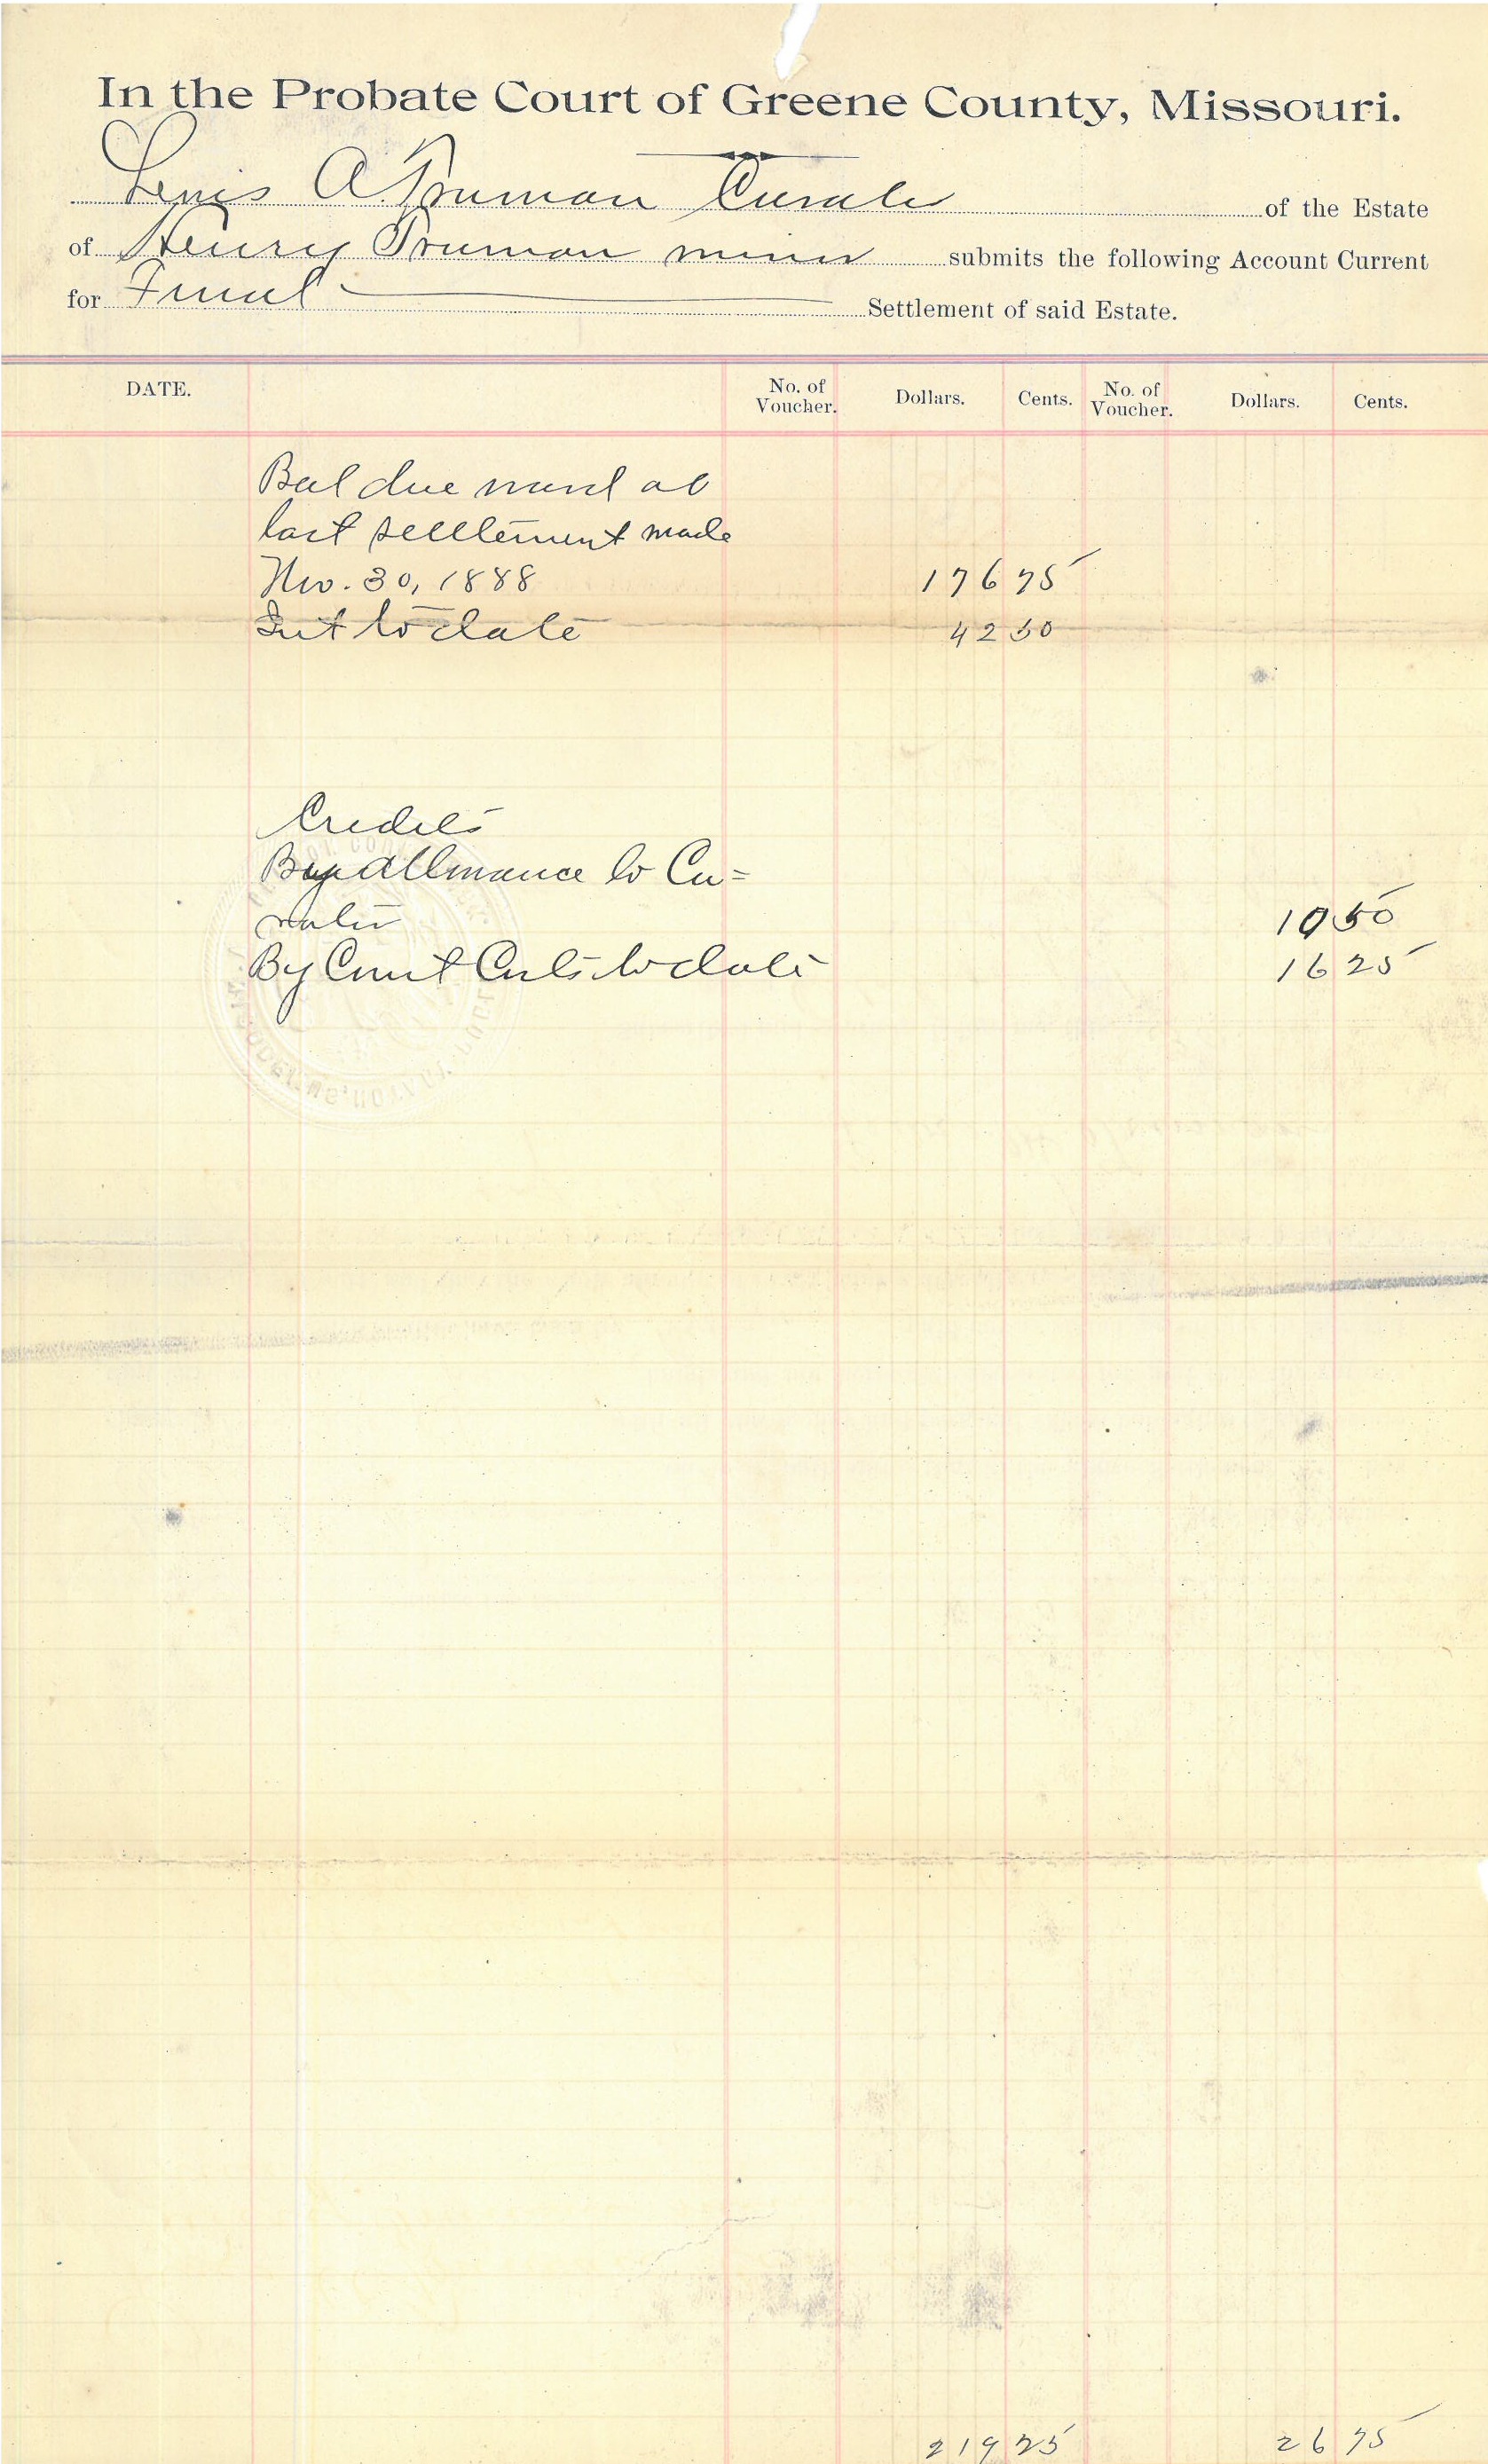 In the Probate Court of Greene County, Missouri.
Lewis A. Truman Curator of the Estate
of Henry Truman minor submits the following Account Current
for Final Settlement of said Estate.
DATE. No. of Voucher. Dollars. Cents. No. of Voucher. Dollars. Cents.
Bal due ward at
last settlement made
Nov. 30, 1888 176 75
Int to date 42 50
Credits
By Allowance to Cu=
rator 10 50
By Court Costs to date 16 25
219 25 26 75